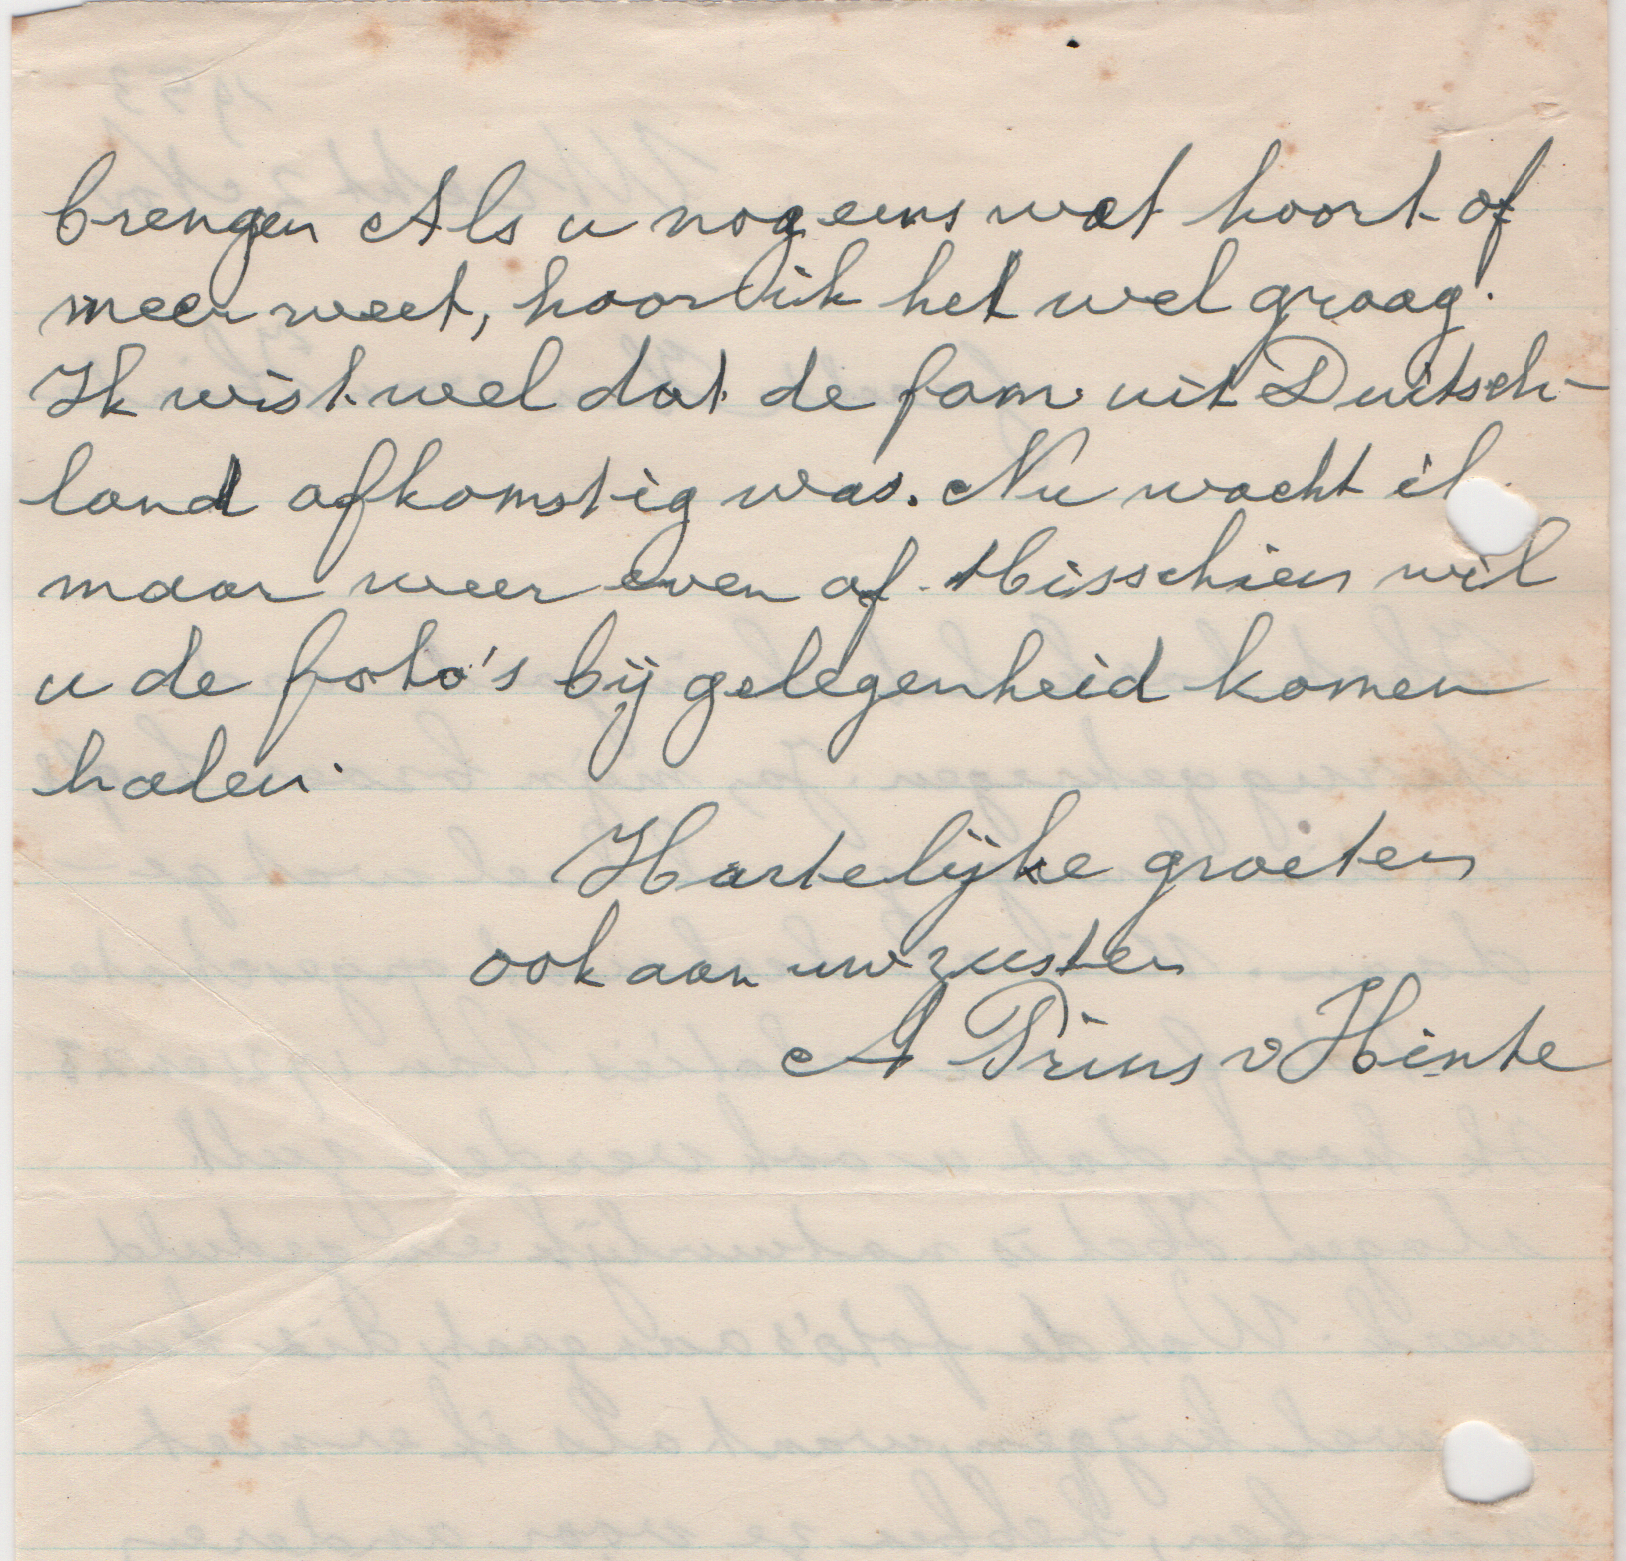 brengen Als u nog eens wat hoort of
meer weet, hoor ik het wel graag.
Ik wist wel dat de fam. uit Duitsch-
land afkomstig was. Nu wacht ik
maar weer even af. Misschien wil
u de foto's bij gelegenheid komen
halen.
Hartelijke groeten
ook aan uw zuster
A Prins v Hinte